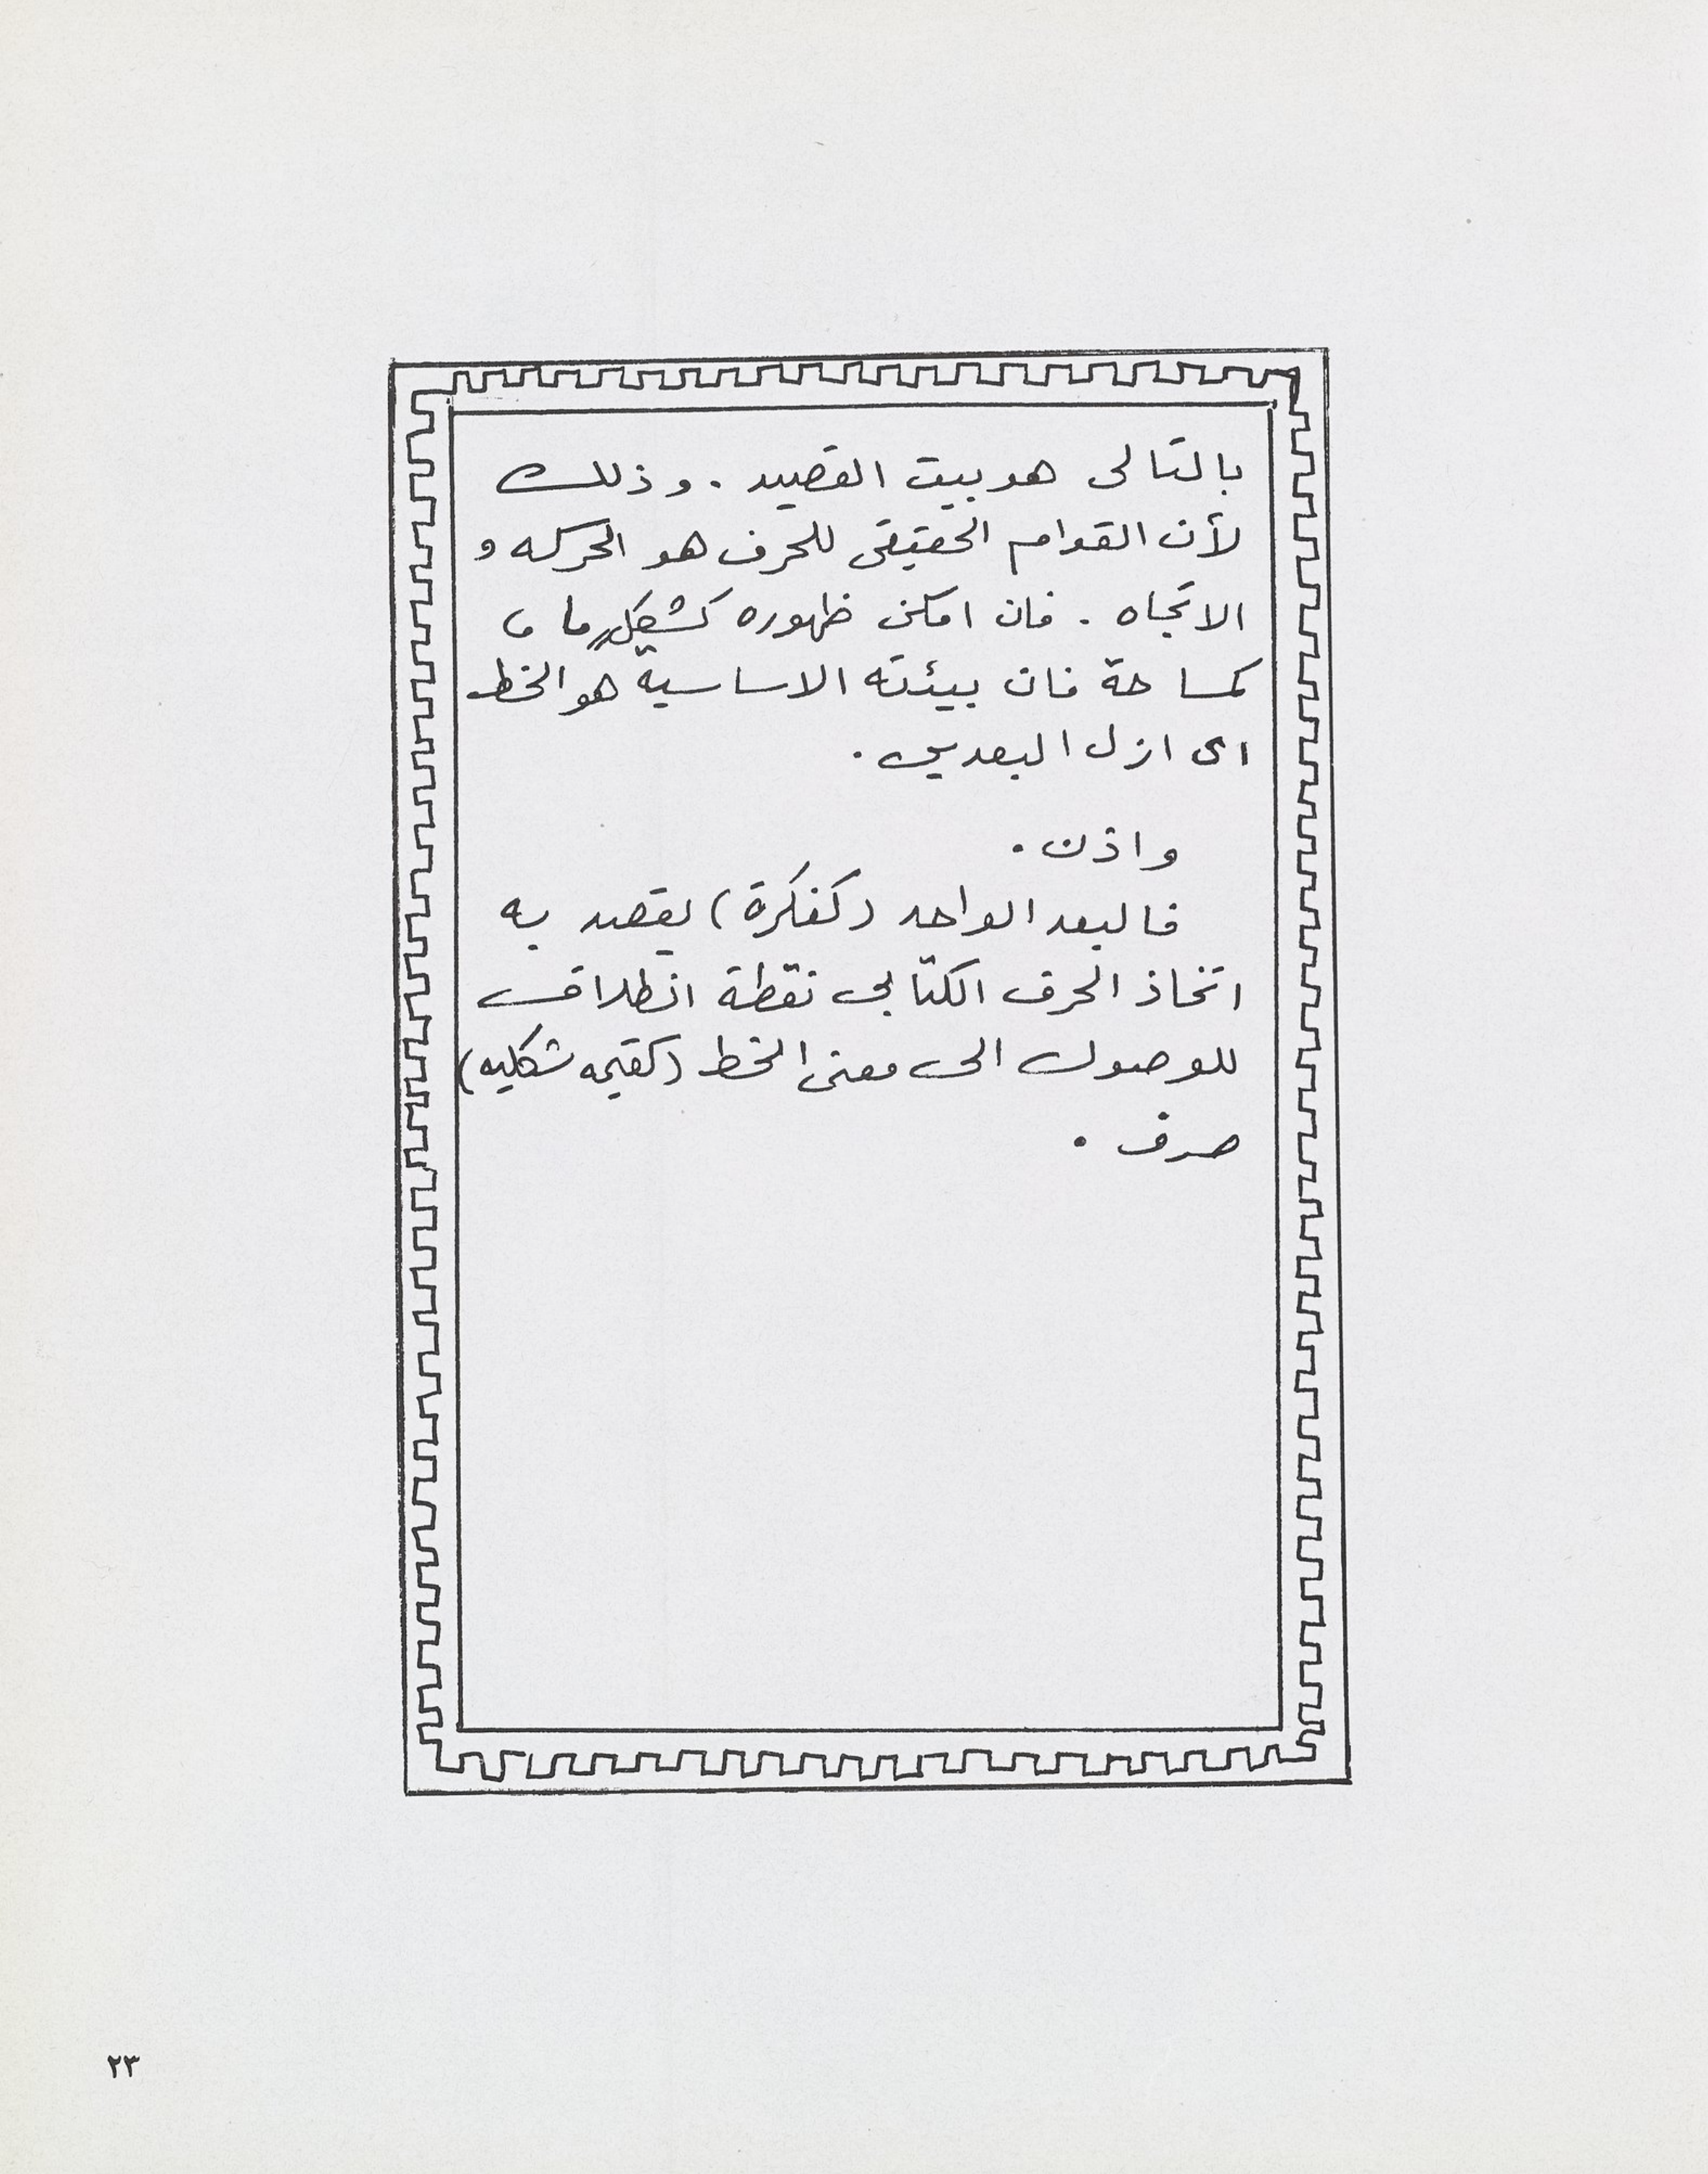 بالتالى هو بيت القصيد . وذلك
لأن القوام الحقيقى للحرف هو الحركه و
الاتجاه . فان امكن ظهوره كشكلٍ ما ،
كمساحة فان بيئته الاساسية هو الخط
اى ازل البعدين .
واذن .
فالبعد الواحد (كفكرة) يقصد به
اتخاذ الحرف الكتابى نقطة انطلاق
للوصول الى معنى الخط (كقيمه شكليه)
صرف .
٢٣